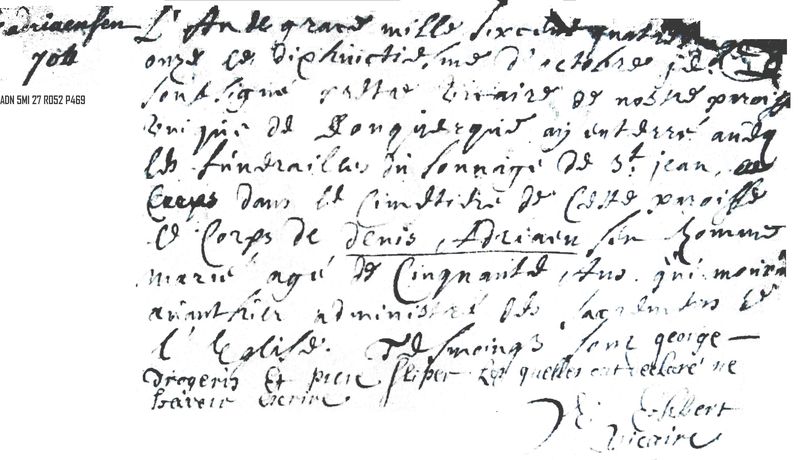 adriaensen
708
ADN 5MI 27 R052 P469
L'An de grace mille six cens quatre
onze le dixhuictiesme d'octobre je
soubsigné prestre vicaire de nostre paroisse
unique de Donquerque ay enterré avecq
les funerailles du sonnage de St jean,
dans le Cimetiere de Cette paroisse
le Corps de Denis Adriaensen homme
marié agé de Cinquante Ans qui mourut
avanthier administré des sacremens de
l'Eglise. Tesmoings sont george
Drogerys Et piere Sliper Les quelles ont declaré ne
Scavoir Escrire
Vicaire